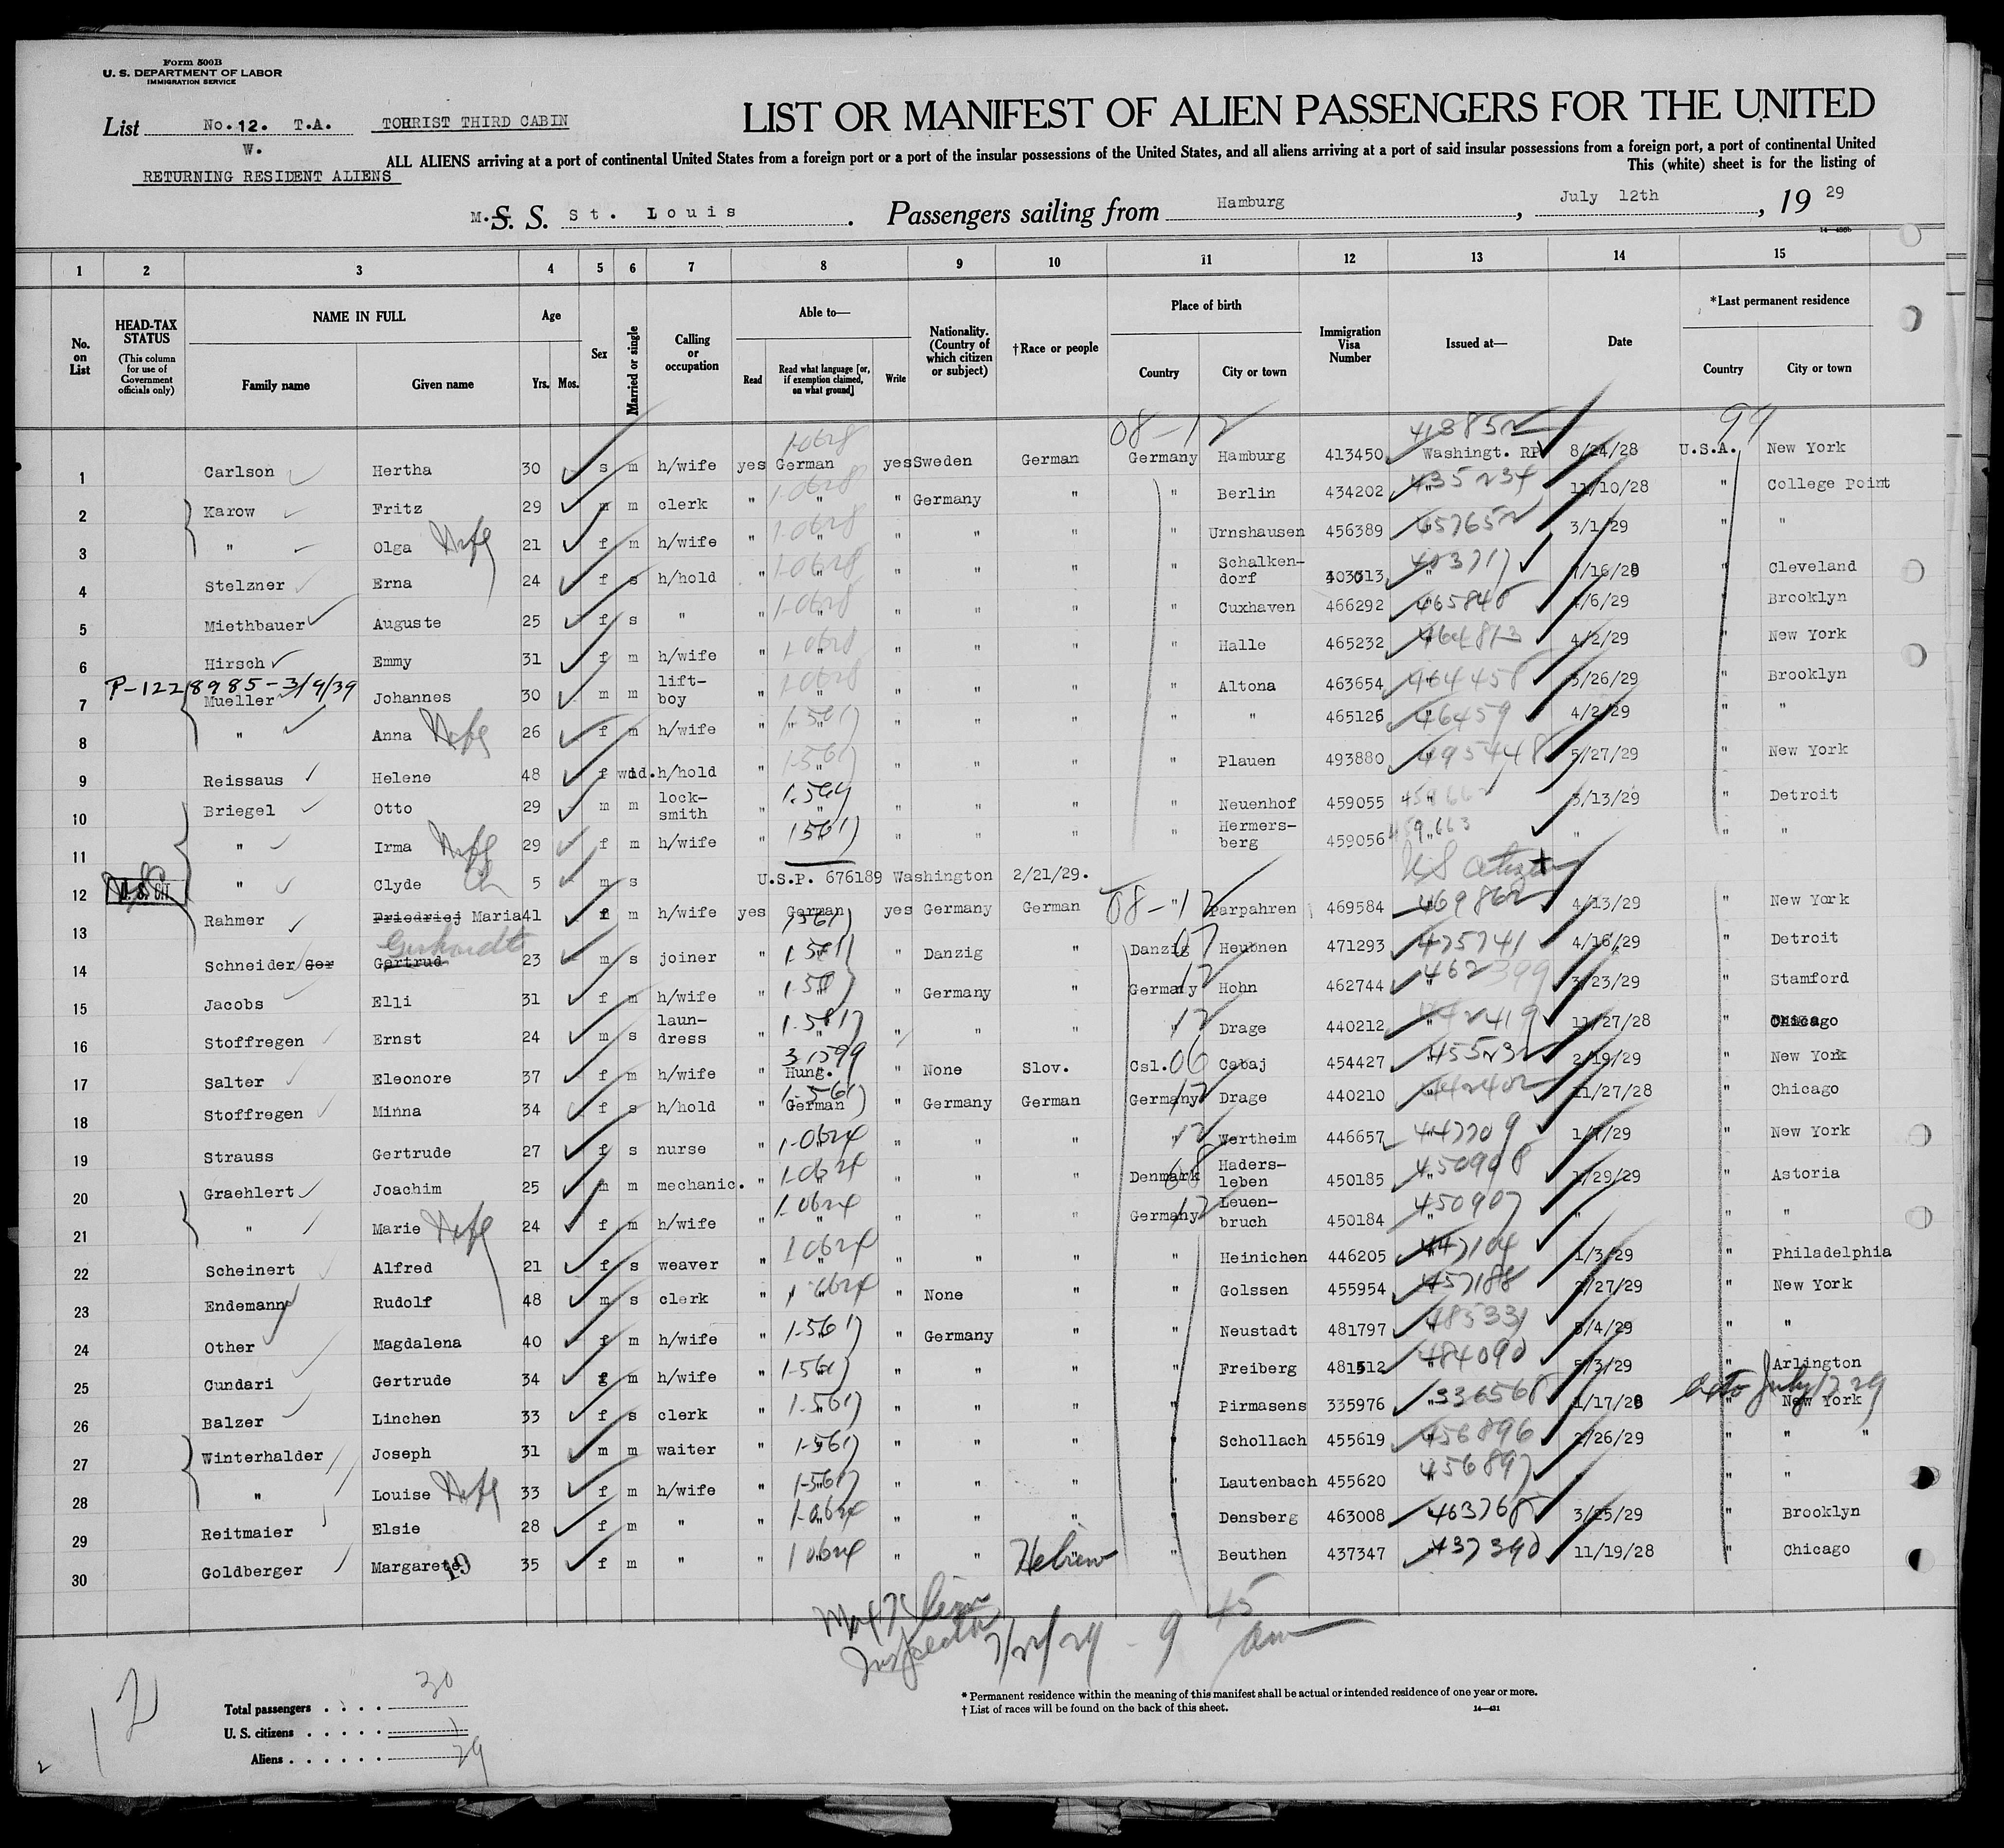 Form 500B
U. S. DEPARTMENT OF LABOR
IMMIGRATION SERVICE
List No. 12. T.A. TOURIST THIRD CABIN
W.
RETURNING RESIDENT ALIENS
LIST OR MANIFEST OF ALIEN PASSENGERS FOR THE UNITED
ALL ALIENS arriving at a port of continental United States from a foreign port or a port of the insular possessions of the United States, and all aliens arriving at a port of said insular possessions from a foreign port, a port of continental United
This (white) sheet is for the listing of
M. S. S. St. Louis. Passengers sailing from Hamburg, July 12th, 1929
1 2 3 4 5 6 7 8 9 10 11 12 13 14 15
No. on List
HEAD-TAX STATUS (This column for use of Government officials only)
NAME IN FULL Family name Given name
Age Yrs. Mos.
Sex
Married or single
Calling or occupation
Able to— Read Read what language [or, if exemption claimed, on what ground] Write
Nationality. (Country of which citizen or subject)
†Race or people
Place of birth Country City or town
Immigration Visa Number
Issued at—
Date
*Last permanent residence Country City or town
08-12 413852 99
1 Carlson Hertha 30 s m h/wife yes German yes Sweden German Germany Hamburg 413450 Washingt. RP 8/24/28 U.S.A. New York
2 Karow Fritz 29 m m clerk " " " Germany " " Berlin 434202 " 435234 11/10/28 " College Point
3 " Olga Wife 21 f m h/wife " " " " " " Urnshausen 456389 " 457652 3/1/29 " "
4 Stelzner Erna 24 f s h/hold " " " " " " Schalkendorf 403717 " Cleveland
5 Miethbauer Auguste 25 f s " " " " " " " Cuxhaven 466292 " 465848 4/6/29 " Brooklyn
6 Hirsch Emmy 31 f m h/wife " " " " " " Halle 465232 " 464813 4/2/29 " New York
P-1228985-3/9/39
7 Mueller Johannes 30 m m lift-boy " " " " " " Altona 463654 " 464458 3/26/29 " Brooklyn
8 " Anna Wife 26 f m h/wife " " " " " " " 465126 " 46459 4/2/29 " "
9 Reissaus Helene 48 f wid. h/hold " " " " " " Plauen 493880 " 495448 5/27/29 " New York
10 Briegel Otto 29 m m lock-smith " " " " " " Neuenhof 459055 " 459662 3/13/29 " Detroit
11 " Irma Wife 29 f m h/wife " " " " " " Hermersberg 459056 " 459663 " " "
12 U. S. CIT. " Clyde Ch 5 m s U.S.P. 676189 Washington 2/21/29. US citizen
13 Rahmer Friedriej Maria 41 f m h/wife yes German yes Germany German 08-12 " Parpahren 469584 " 469862 4/13/29 " New York
14 Schneider Ger Gertrud Gerhardt 23 m s joiner " " " Danzig " Danzig 07 Heubnen 471293 " 475741 4/16/29 " Detroit
15 Jacobs Elli 31 f m h/wife " " " Germany " Germany 12 Hohn 462744 " 462399 3/23/29 " Stamford
16 Stoffregen Ernst 24 m s laun-dress " " " " " " 12 Drage 440212 " 442419 11/27/28 " Chicago
17 Salter Eleonore 37 f m h/wife " Hung. " None Slov. Csl. 06 Cabaj 454427 " 455232 2/19/29 " New York
18 Stoffregen Minna 34 f s h/hold " German " Germany German Germany 12 Drage 440210 " 442402 11/27/28 " Chicago
19 Strauss Gertrude 27 f s nurse " " " " " " 12 Wertheim 446657 " 447709 1/7/29 " New York
20 Graehlert Joachim 25 m m mechanic. " " " " " Denmark 08 Hadersleben 450185 " 450908 1/29/29 " Astoria
21 " Marie Wife 24 f m h/wife " " " " " Germany 12 Leuenbruch 450184 " 450907 " " "
22 Scheinert Alfred 21 f s weaver " " " " " " Heinichen 446205 " 447104 1/3/29 " Philadelphia
23 Endemann Rudolf 48 m s clerk " " " None " " Golssen 455954 " 457188 2/27/29 " New York
24 Other Magdalena 40 f m h/wife " " " Germany " " Neustadt 481797 " 485331 5/4/29 " "
25 Cundari Gertrude 34 f m h/wife " " " " " " Freiberg 481512 " 484090 5/3/29 " Arlington
26 Balzer Linchen 33 f s clerk " " " " " " Pirmasens 335976 " 336568 1/17/28 " New York
27 Winterhalder Joseph 31 m m waiter " " " " " " Schollach 455619 " 456896 2/26/29 " " "
28 " Louise Wife 33 f m h/wife " " " " " " Lautenbach 455620 " 456897 " " "
29 Reitmaier Elsie 28 f m " " " " " " " Densberg 463008 " 463768 3/25/29 " Brooklyn
30 Goldberger Margarete 19 35 f m " " " " " Hebrew " Beuthen 437347 " 437390 11/19/28 " Chicago
Inspector 7/22/29 - 9 45 am
* Permanent residence within the meaning of this manifest shall be actual or intended residence of one year or more.
† List of races will be found on the back of this sheet. 14—431
Total passengers . . . . 30
U. S. citizens . . . . . 1
Aliens . . . . . . 29